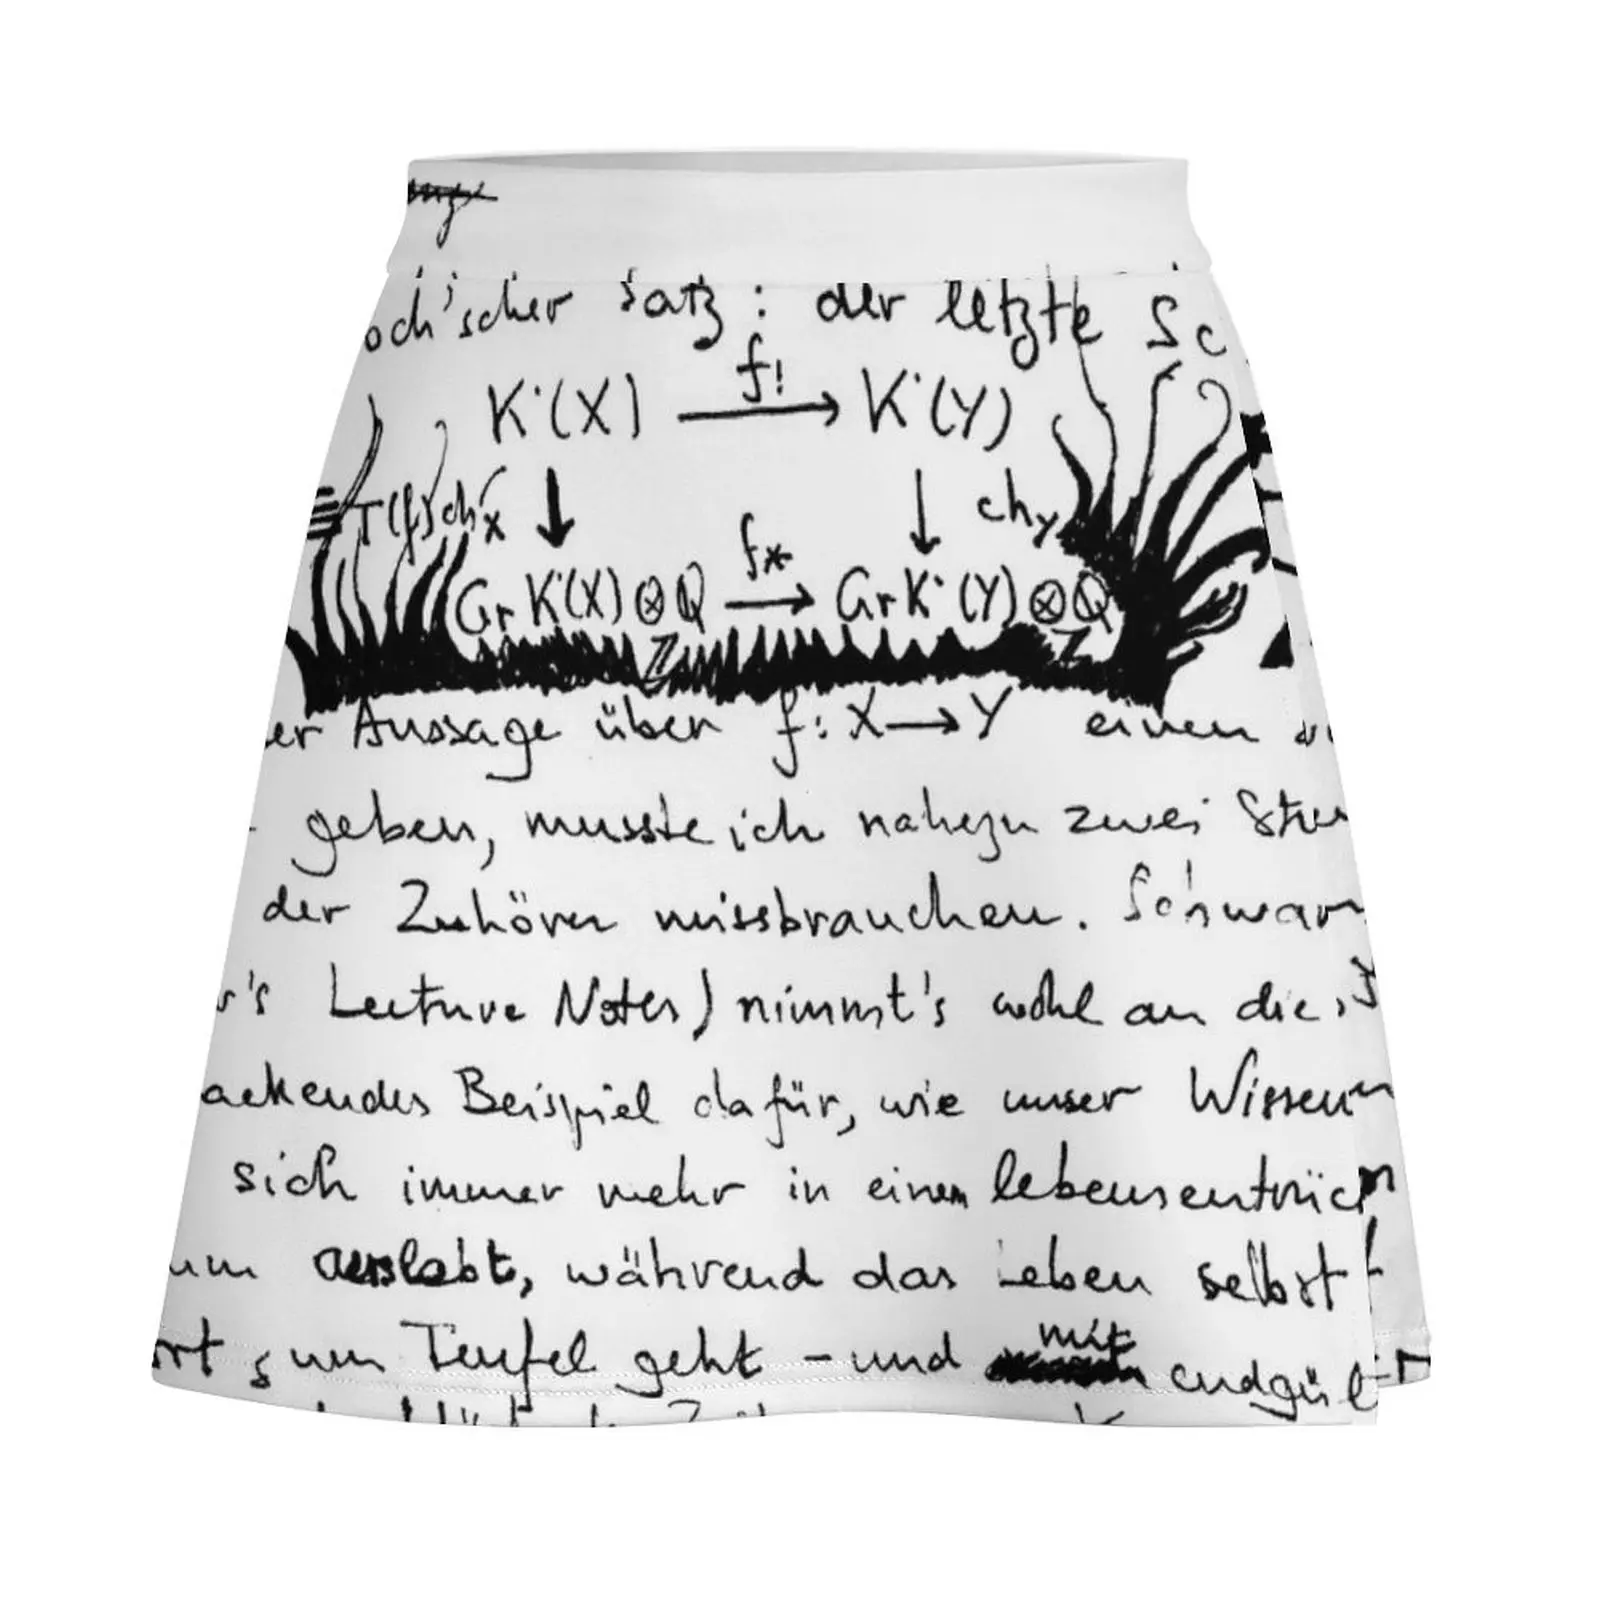 och'scher Satz : der letzte Sc
K·(X) f! → K·(Y)
T(f)ch x ↓ ↓ ch Y
Gr K·(X) ⊗ Q f* → Gr K·(Y) ⊗ Q
Z Z
er Aussage über f: X → Y einen
geben, musste ich nahezu zwei Stu
der Zuhörer missbrauchen. Schwar
r's Lecture Notes) nimmt's wohl an die
ackendes Beispiel dafür, wie unser Wissen
sich immer mehr in einem lebensentrück
um auslebt, während das Leben selbst
zum Teufel geht - und mit endgült